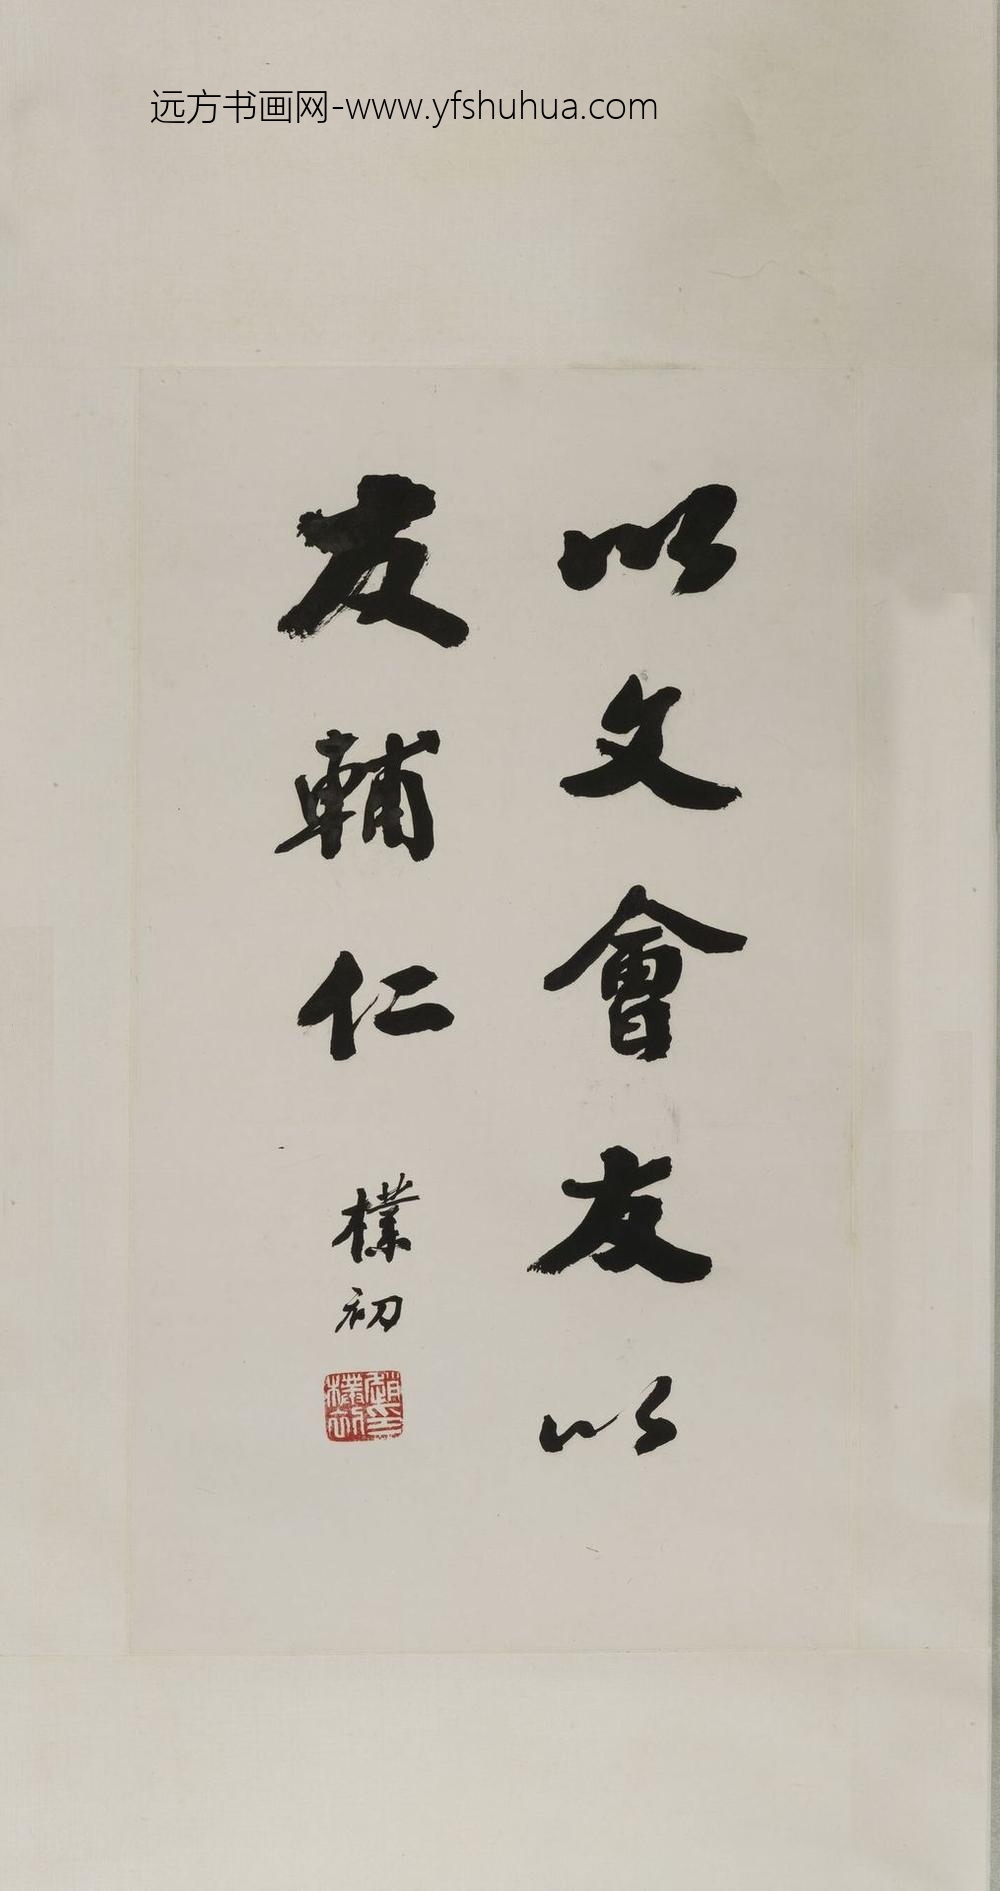 远方书画网-www.yfshuhua.com
以文會友以
友輔仁
樸初
趙樸初印